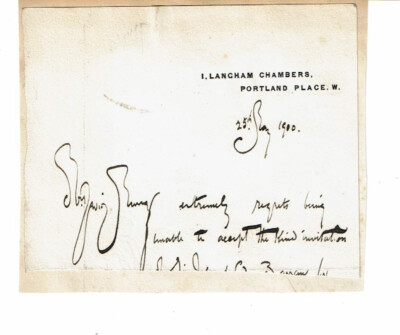 1, LANGHAM CHAMBERS,
PORTLAND PLACE. W.
25th May 1900.
Mr David Murray extremely regrets being
unable to accept the kind invitation